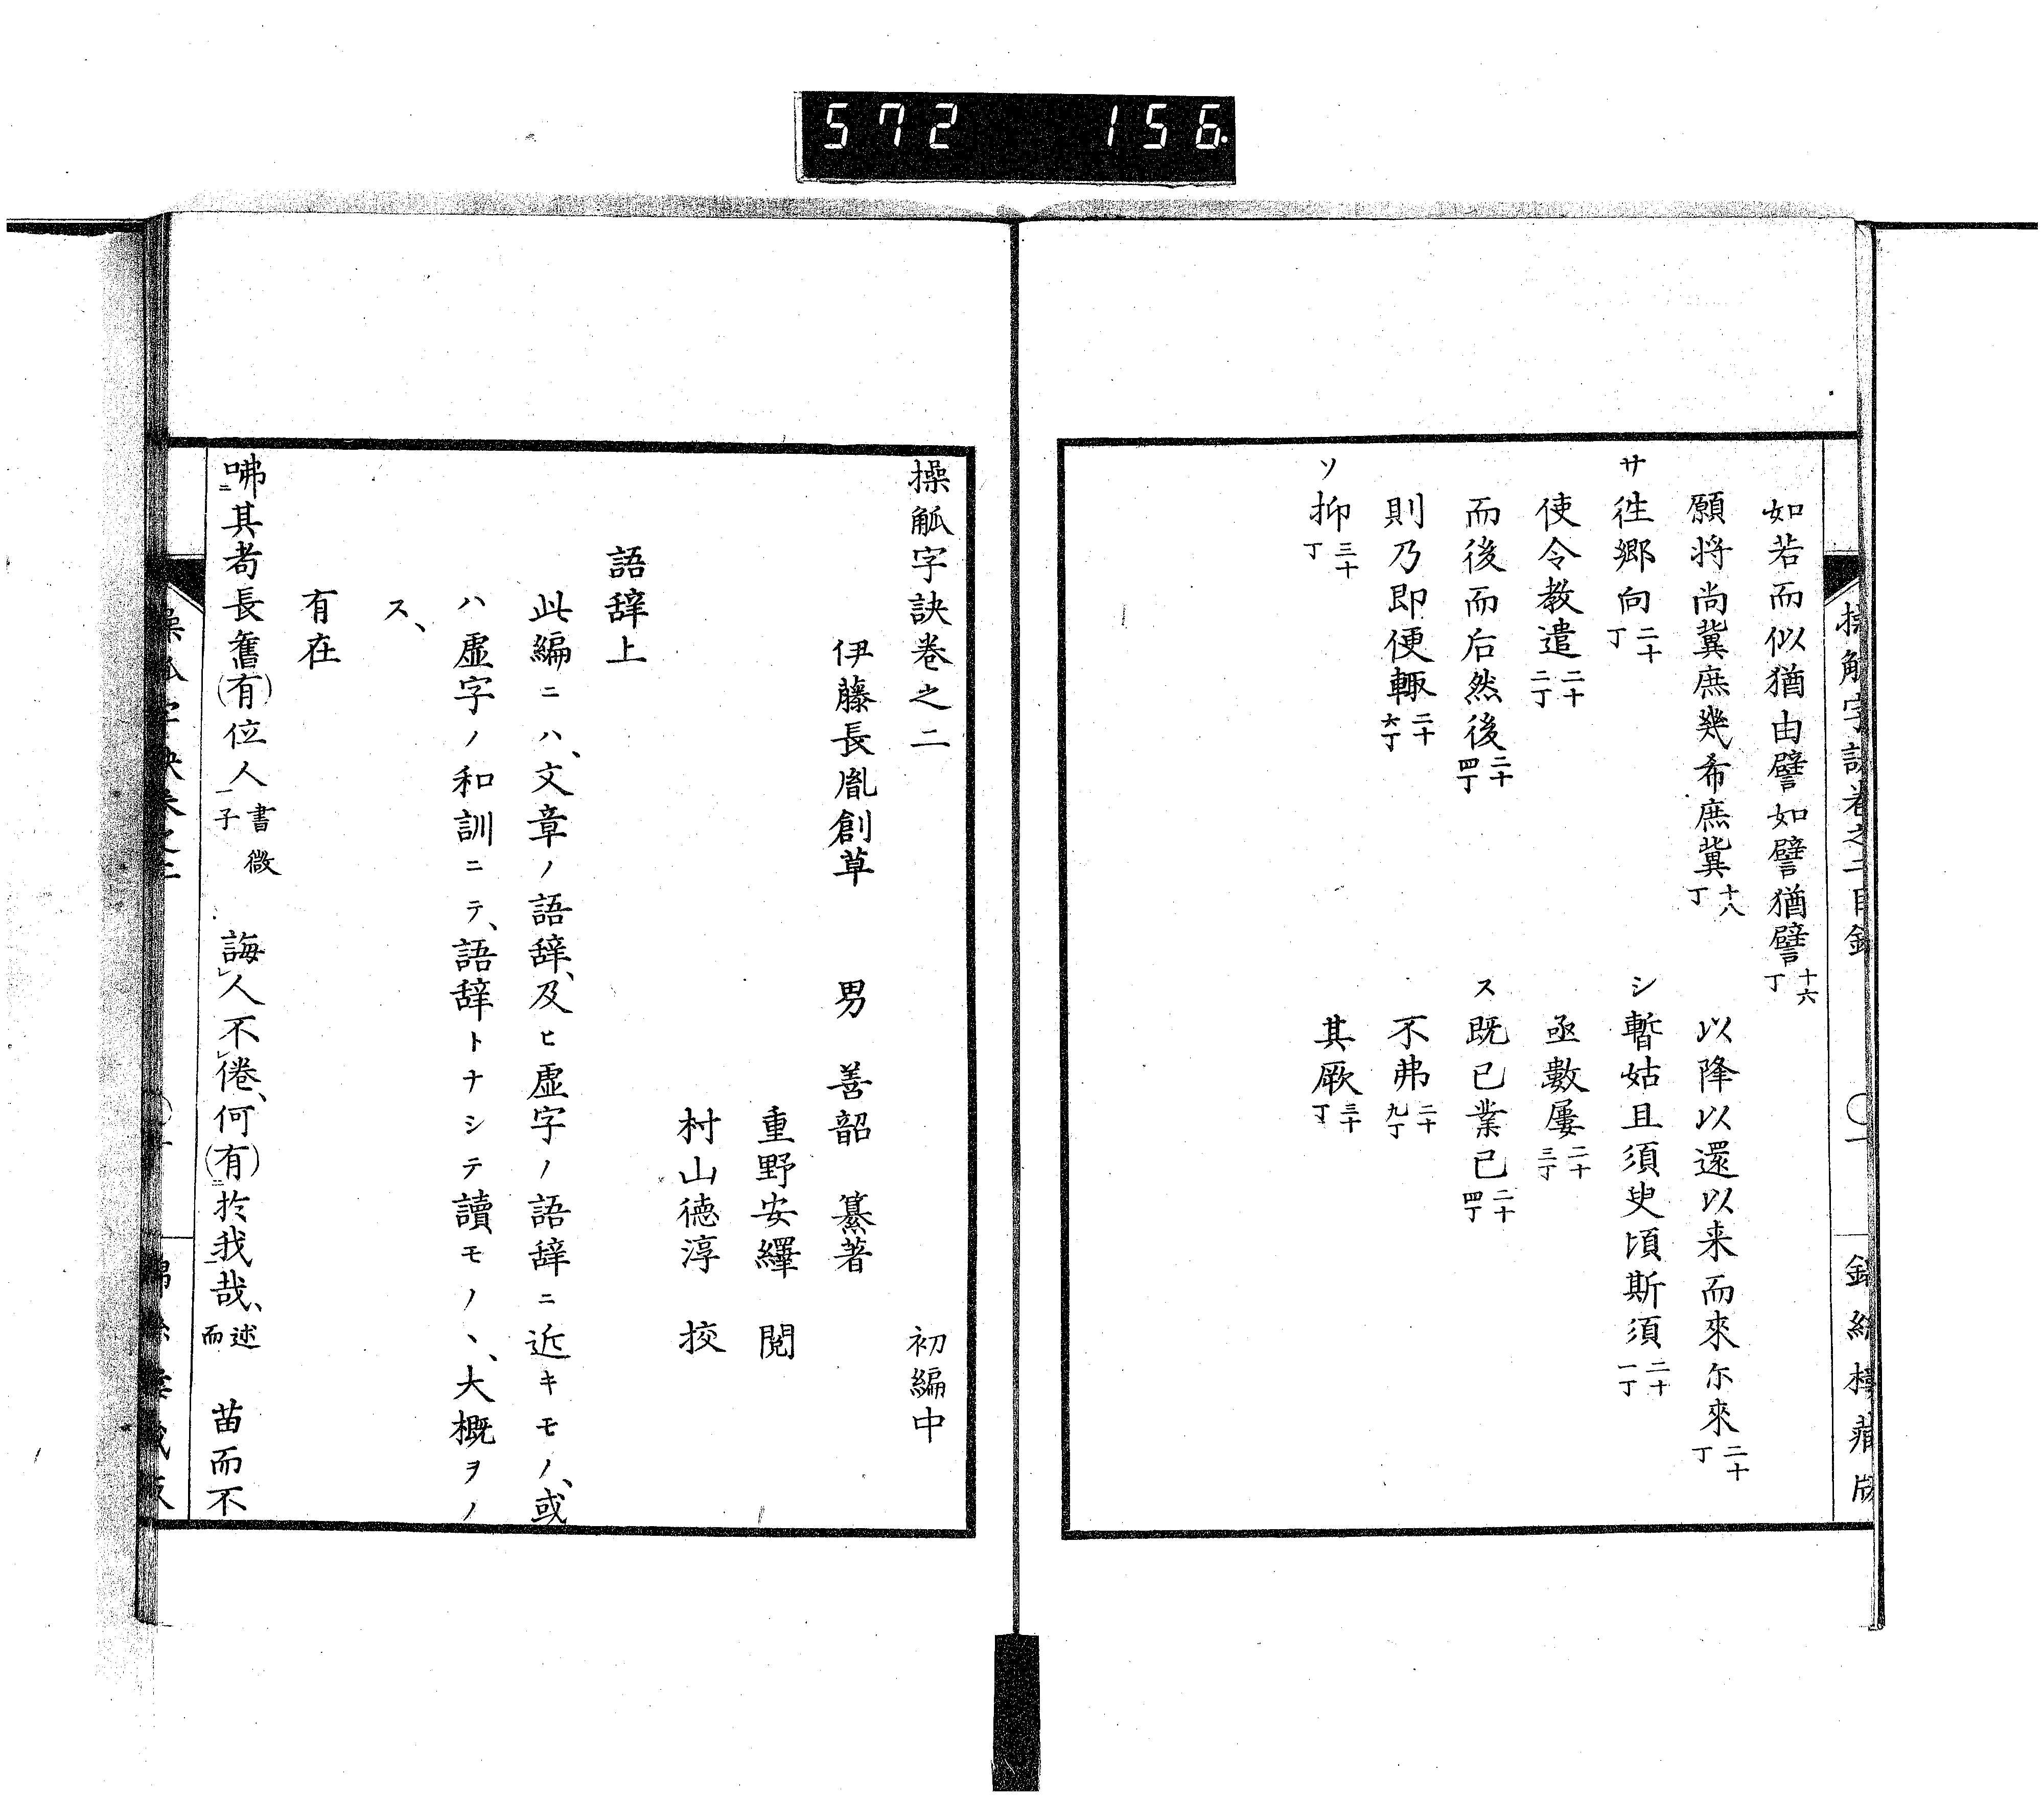 572 156
如若而似猶由譬如譬猶譬 十六丁
願将尚冀庶幾希庶冀 十八丁
以降以還以来而來尓來 二十丁
サ 徃郷向 二十丁
シ 暫姑且須臾頃斯須 二十一丁
使令教遣 二十二丁
亟數屢 二十三丁
而後而后然後 二十四丁
ス 既已業已 二十四丁
則乃即便輙 二十六丁
不弗 二十九丁
ソ 抑 三十丁
其厥 三十丁
操觚字訣巻之二 初編中
伊藤長胤創草 男 善韶 纂著
重野安繹 閲
村山徳淳 挍
語辞上
此編ニハ、文章ノ語辞、及ヒ虚字ノ語辞ニ近キモノ、或
ハ虚字ノ和訓ニテ、語辞トナシテ讀モノヽ、大概ヲノ
ス、
有在
咈其耇長舊(有)位人 書微子 誨人不倦、何(有)於我哉、 述而 苗而不